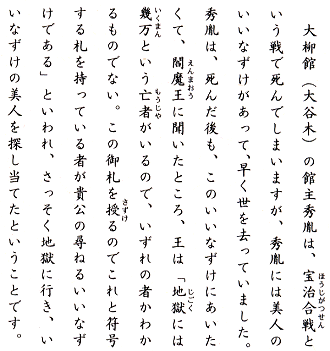 大柳館（大谷木）の館主秀胤は、宝治合戦と
いう戦で死んでしまいますが、秀胤には美人の
いいなずけがあって、早く世を去っていました。
秀胤は、死んだ後も、このいいなずけにあいた
くて、閻魔王に聞いたところ、王は「地獄には
幾万という亡者がいるので、いずれの者かわか
るものでない。この御札を授るのでこれと符号
する札を持っている者が貴公の尋ねるいいなず
けである」といわれ、さっそく地獄に行き、い
いなずけの美人を探し当てたということです。